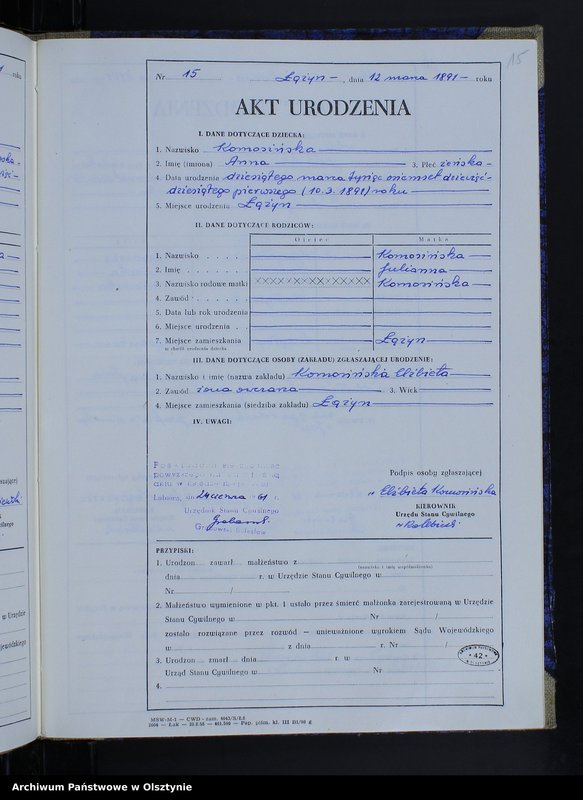 15
Nr 15 Łążyn — , dnia 12 marca 1891 — roku
AKT URODZENIA
I. DANE DOTYCZĄCE DZIECKA:
1. Nazwisko Komosińska
2. Imię (imiona) Anna 3. Płeć żeńska —
4. Data urodzenia dziesiątego marca tysiąc osiemset dziewięć-
dziesiątego pierwszego (10.3.1891) roku
5. Miejsce urodzenia Łążyn
II. DANE DOTYCZĄCE RODZICÓW:
Ojciec Matka
1. Nazwisko Komosińska
2. Imię Julianna
3. Nazwisko rodowe matki XXXXXXXXXXXXX Komosińska
4. Zawód
5. Data lub rok urodzenia
6. Miejsce urodzenia
7. Miejsce zamieszkania Łążyn
w chwili urodzenia dziecka
III. DANE DOTYCZĄCE OSOBY (ZAKŁADU) ZGŁASZAJĄCEJ URODZENIE:
1. Nazwisko i imię (nazwa zakładu) Komosińska Elżbieta
2. Zawód żona owczarza 3. Wiek
4. Miejsce zamieszkania (siedziba zakładu) Łążyn
IV. UWAGI:
Podpis osoby zgłaszającej
Lubawa, dn. 24 czerwca 61 r.
„ Elżbieta Komosińska
Urzędnik Stanu Cywilnego
KIEROWNIK
Urzędu Stanu Cywilnego
PRZYPISKI:
1. Urodzon zawarł małżeństwo z
(nazwisko i imię współmałżonka)
dnia r. w Urzędzie Stanu Cywilnego w
Nr /
2. Małżeństwo wymienione w pkt. 1 ustało przez śmierć małżonka zarejestrowaną w Urzędzie
Stanu Cywilnego w Nr /
zostało rozwiązane przez rozwód — unieważnione wyrokiem Sądu Wojewódzkiego
w z dnia r. Nr /
3. Urodzon zmarł dnia r. w
Urząd Stanu Cywilnego w Nr
4.
* 42 *
Archiwum Państwowe w Olsztynie